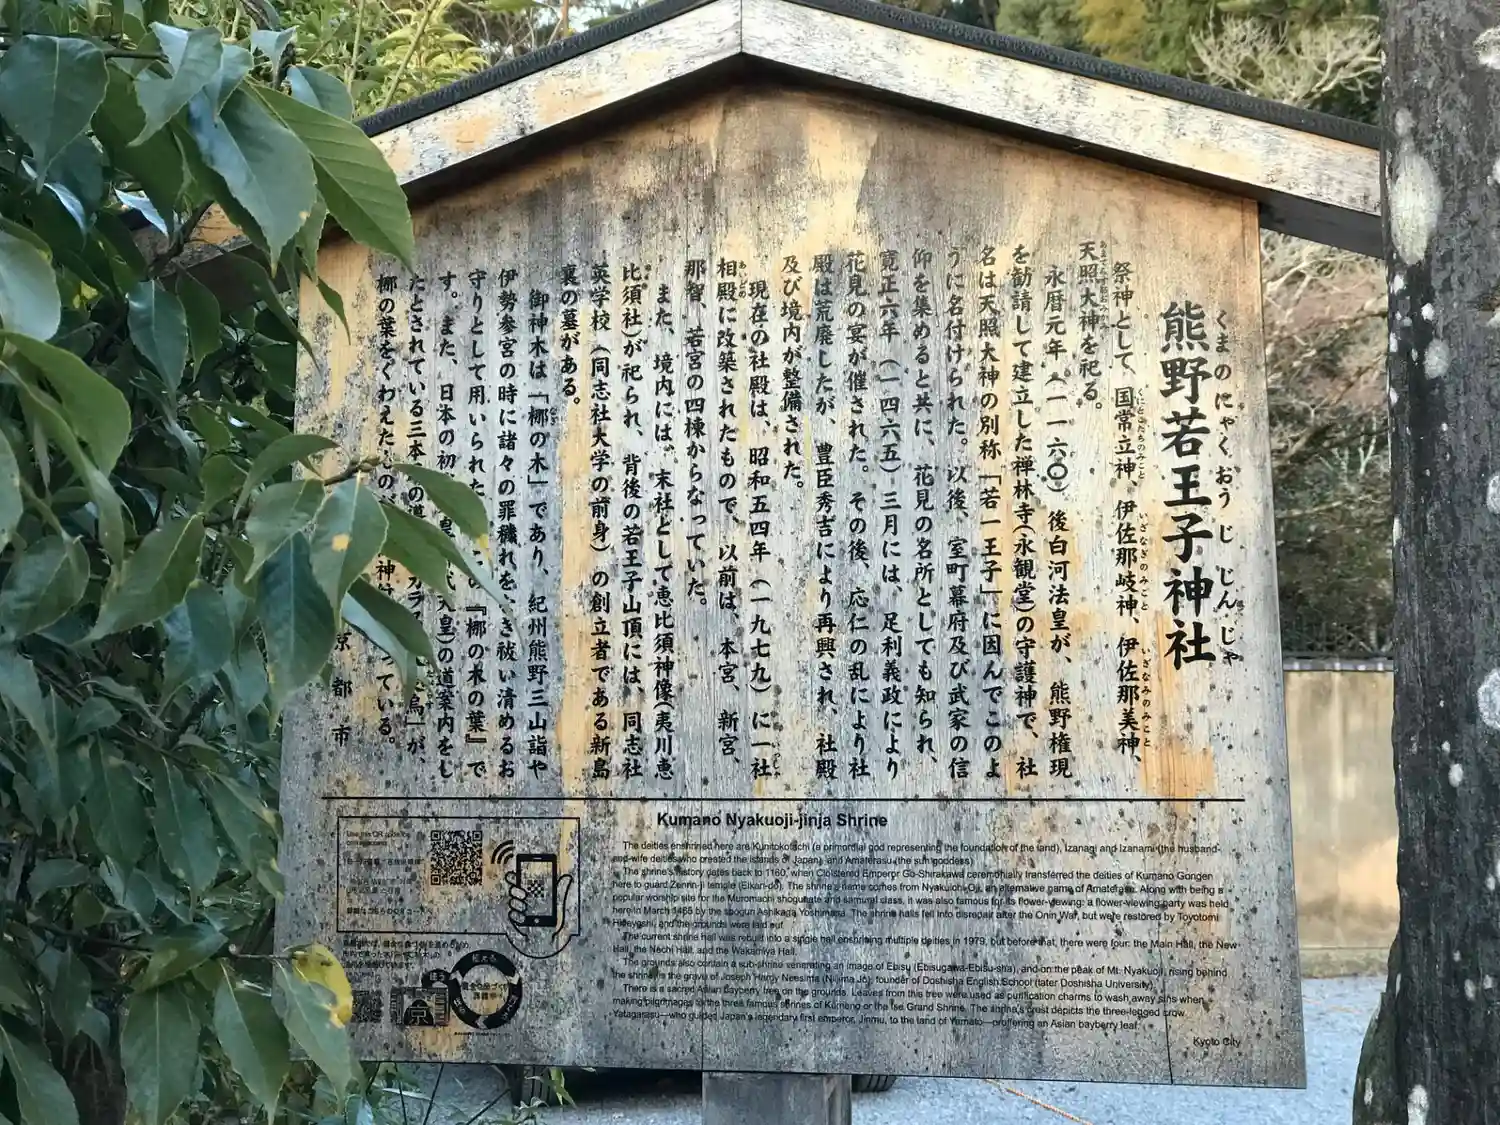 熊野若王子神社
くまのにゃくおうじじんじゃ
祭神として、国常立神、伊佐那岐神、伊佐那美神、
くにとこたちのみこと いざなぎのみこと いざなみのみこと
天照大神を祀る。
永暦元年(一一六〇)後白河法皇が、熊野権現
を勧請して建立した禅林寺(永観堂)の守護神で、社
名は天照大神の別称「若一王子」に因んでこのよ
うに名付けられた。以後、室町幕府及び武家の信
仰を集めると共に、花見の名所としても知られ、
寛正六年(一四六五)三月には、足利義政により
花見の宴が催された。その後、応仁の乱により社
殿は荒廃したが、豊臣秀吉により再興され、社殿
及び境内が整備された。
現在の社殿は、昭和五四年(一九七九)に一社
相殿に改築されたもので、以前は、本宮、新宮、
あいどの
那智、若宮の四棟からなっていた。
また、境内には、末社として恵比須神像(夷川恵
比須社)が祀られ、背後の若王子山頂には、同志社
英学校(同志社大学の前身)の創立者である新島
襄の墓がある。
御神木は「梛の木」であり、紀州熊野三山詣や
伊勢参宮の時に諸々の罪穢れを き祓い清めるお
守りとして用いられた 『梛の木の葉』で
す。また、日本の初 天皇)の道案内をし
たとされている三本 の カラス 烏」が、
梛の葉をくわえたものが 神 っている。
京都市
Kumano Nyakuoji-jinja Shrine
The deities enshrined here are Kunitokotachi (a primordial god representing the foundation of the land), Izanagi and Izanami (the husband-
and-wife deities who created the islands of Japan), and Amaterasu (the sun goddess).
The shrine's history dates back to 1160, when Cloistered Emperor Go-Shirakawa ceremonially transferred the deities of Kumano Gongen
here to guard Zenrin-ji temple (Eikan-do). The shrine's name comes from Nyakuichi-Oji, an alternative name of Amaterasu. Along with being a
popular worship site for the Muromachi shogunate and samurai class, it was also famous for its flower-viewing: a flower-viewing party was held
here in March 1465 by the shogun Ashikaga Yoshimasa. The shrine halls fell into disrepair after the Onin War, but were restored by Toyotomi
Hideyoshi, and the grounds were laid out.
The current shrine hall was rebuilt into a single hall enshrining multiple deities in 1979, but before that, there were four: the Main Hall, the New
Hall, the Nachi Hall, and the Wakamiya Hall.
The grounds also contain a sub-shrine venerating an image of Ebisu (Ebisugawa-Ebisu-sha), and on the peak of Mt. Nyakuoji, rising behind
the shrine, is the grave of Joseph Hardy Neesima (Niijima Jo), founder of Doshisha English School (later Doshisha University).
There is a sacred Asian bayberry tree on the grounds. Leaves from this tree were used as purification charms to wash away sins when
making pilgrimages to the three famous shrines of Kumano or the Ise Grand Shrine. The shrine's crest depicts the three-legged crow
Yatagarasu—who guided Japan's legendary first emperor, Jinmu, to the land of Yamato—proffering an Asian bayberry leaf.
Kyoto City